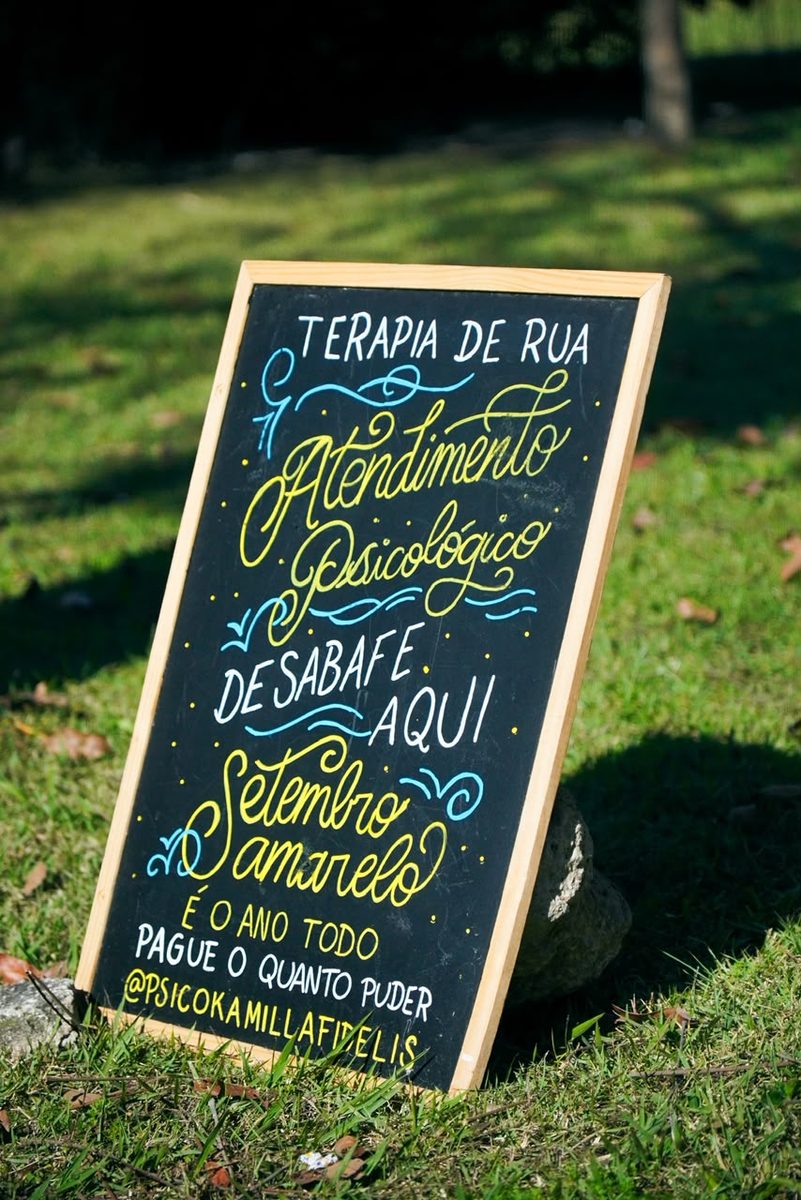 TERAPIA DE RUA
Atendimento
Psicológico
DESABAFE
AQUI
Setembro
amarelo
É O ANO TODO
PAGUE O QUANTO PUDER
@PSICOKAMILLAFIDELIS